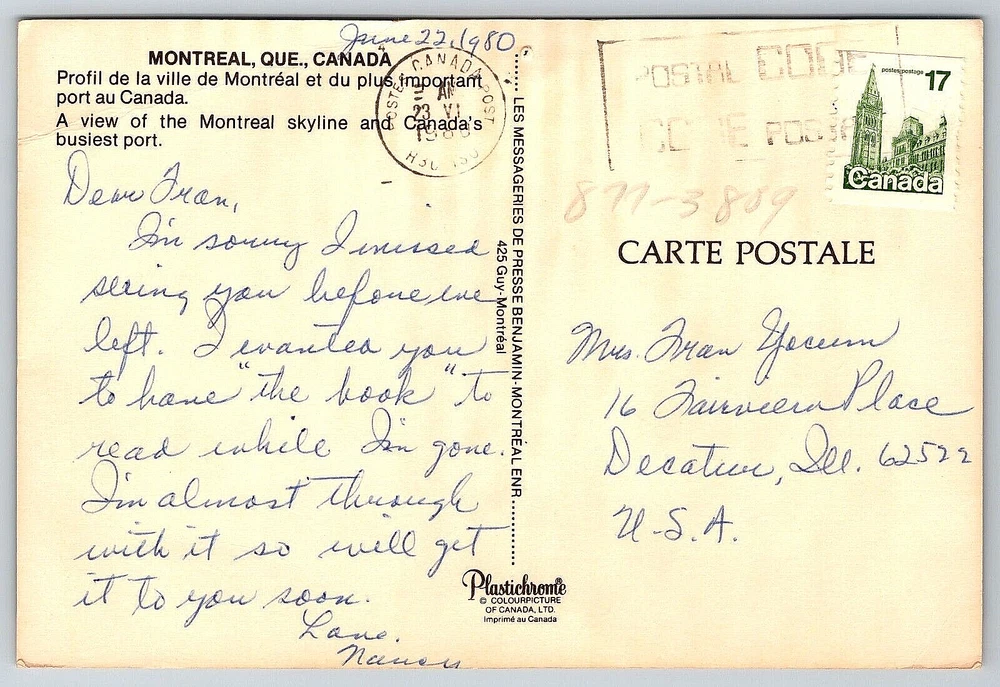 June 22, 1980
MONTREAL, QUE., CANADA
Profil de la ville de Montréal et du plus important
port au Canada.
A view of the Montreal skyline and Canada's
busiest port.
POSTES CANADA POST
AM
23 VI
Dear Fran,
I'm sorry I missed
seeing you before we
left. I wanted you
to have "the book" to
read while I'm gone.
I'm almost through
with it so will get
it to you soon.
Love,
Nancy
LES MESSAGERIES DE PRESSE BENJAMIN-MONTRÉAL ENR.
425 Guy-Montréal
Plastichrome®
© COLOURPICTURE
OF CANADA, LTD.
Imprimé au Canada
POSTAL CODE
CODE POSTAL
postes postage
17
Canada
877-3809
CARTE POSTALE
Mrs. Fran Yocum
16 Fairview Place
Decatur, Ill. 62522
U.S.A.